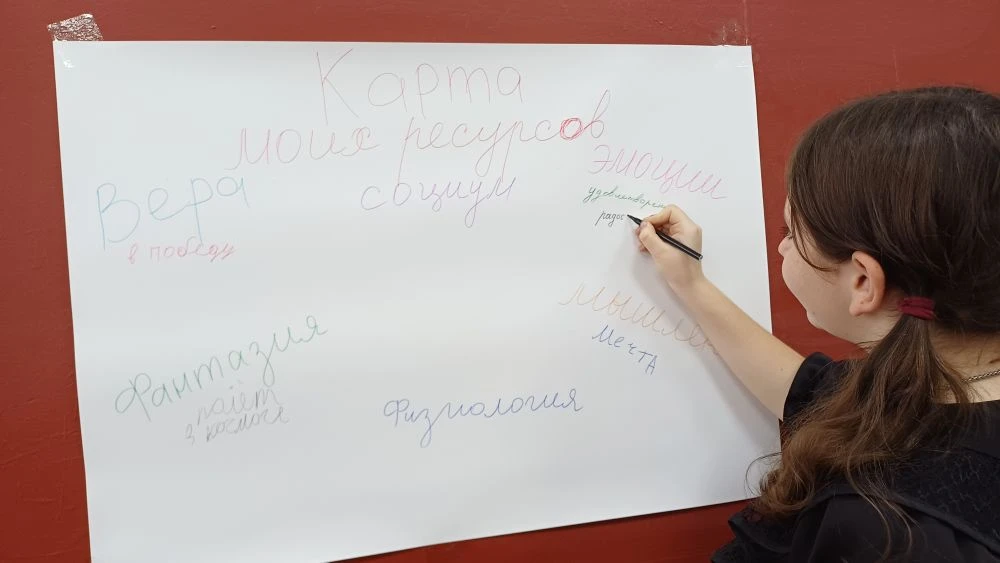 Карта
моих ресурсов
Вера
в победу
социум
эмоции
удовлетворен
радос
мышлен
мечта
Фантазия
полёт
в космос
Физиология